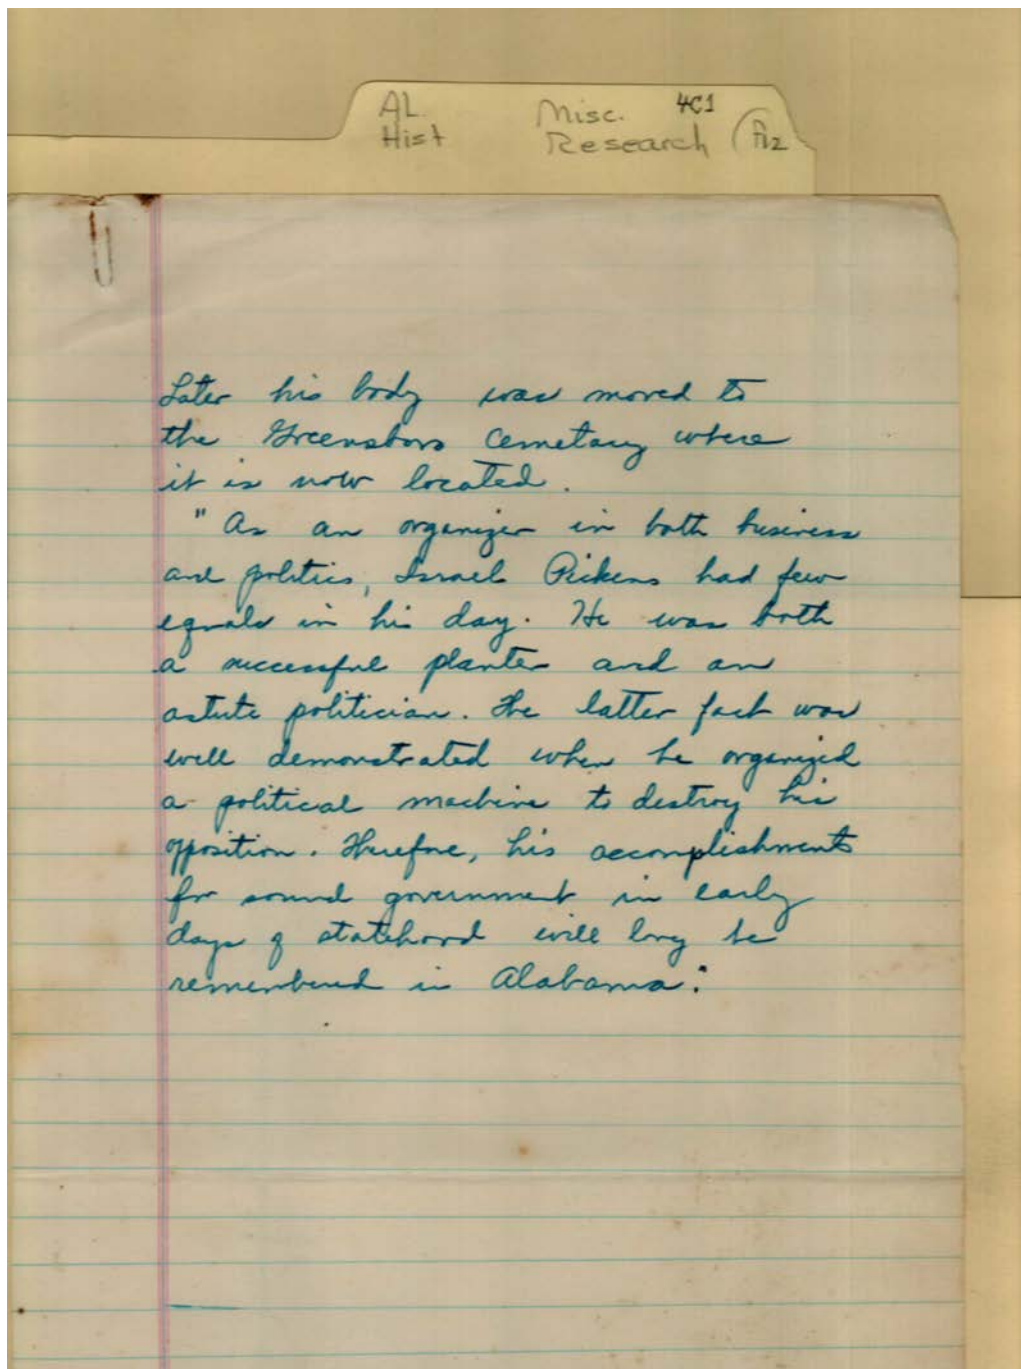 AL. Misc. 4C1
Hist Research
Later his body was moved to
the Greensboro Cemetary where
it is now located.
" As an organizer in both business
and politics, Israel Pickens had few
equals in his day. He was both
a successful planter and an
astute politician. The latter fact was
well demonstrated when he organized
a political machine to destroy his
opposition. Therefore, his accomplishments
for sound government in early
days of statehood will long be
remembered in Alabama."